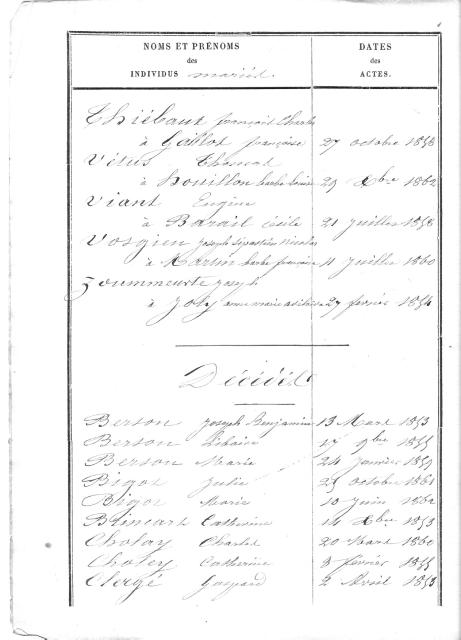 NOMS ET PRÉNOMS
des
INDIVIDUS mariés.
DATES
des
ACTES.
Thiébaut françois Charles
à Gaillot françoise 27 octobre 1858
Vitus Thomas
à Houillon barbe 29 Xbre 1862
Viant Eugène
à Barail Cécile 21 Juillet 1858
Vosgien Joseph Sébastien Nicolas
à Martin barbe françoise 11 Juillet 1860
Joseph
à Joly anne marie 27 fevrier 1854
Décédés
Berson Joseph Benjamin 13 Mars 1853
Berson Libaire 17 9bre 1855
Berson Marie 24 Janvier 1859
Bigot Julie 25 octobre 1861
Bigot Marie 10 Juin 1862
Brincart Catherine 14 Xbre 1853
Choley Charles 20 Mars 1860
Choley Catherine février 1855
Clergé Gaspard 2 Avril 1853